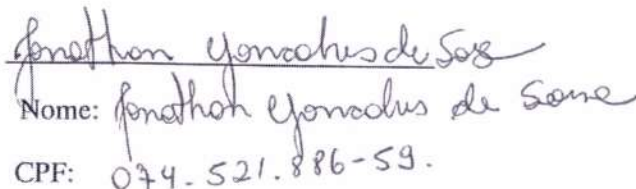 Jonathan Goncalves de Soz
Nome: Jonathan Goncalves de Sousa
CPF: 074.521.886-59.